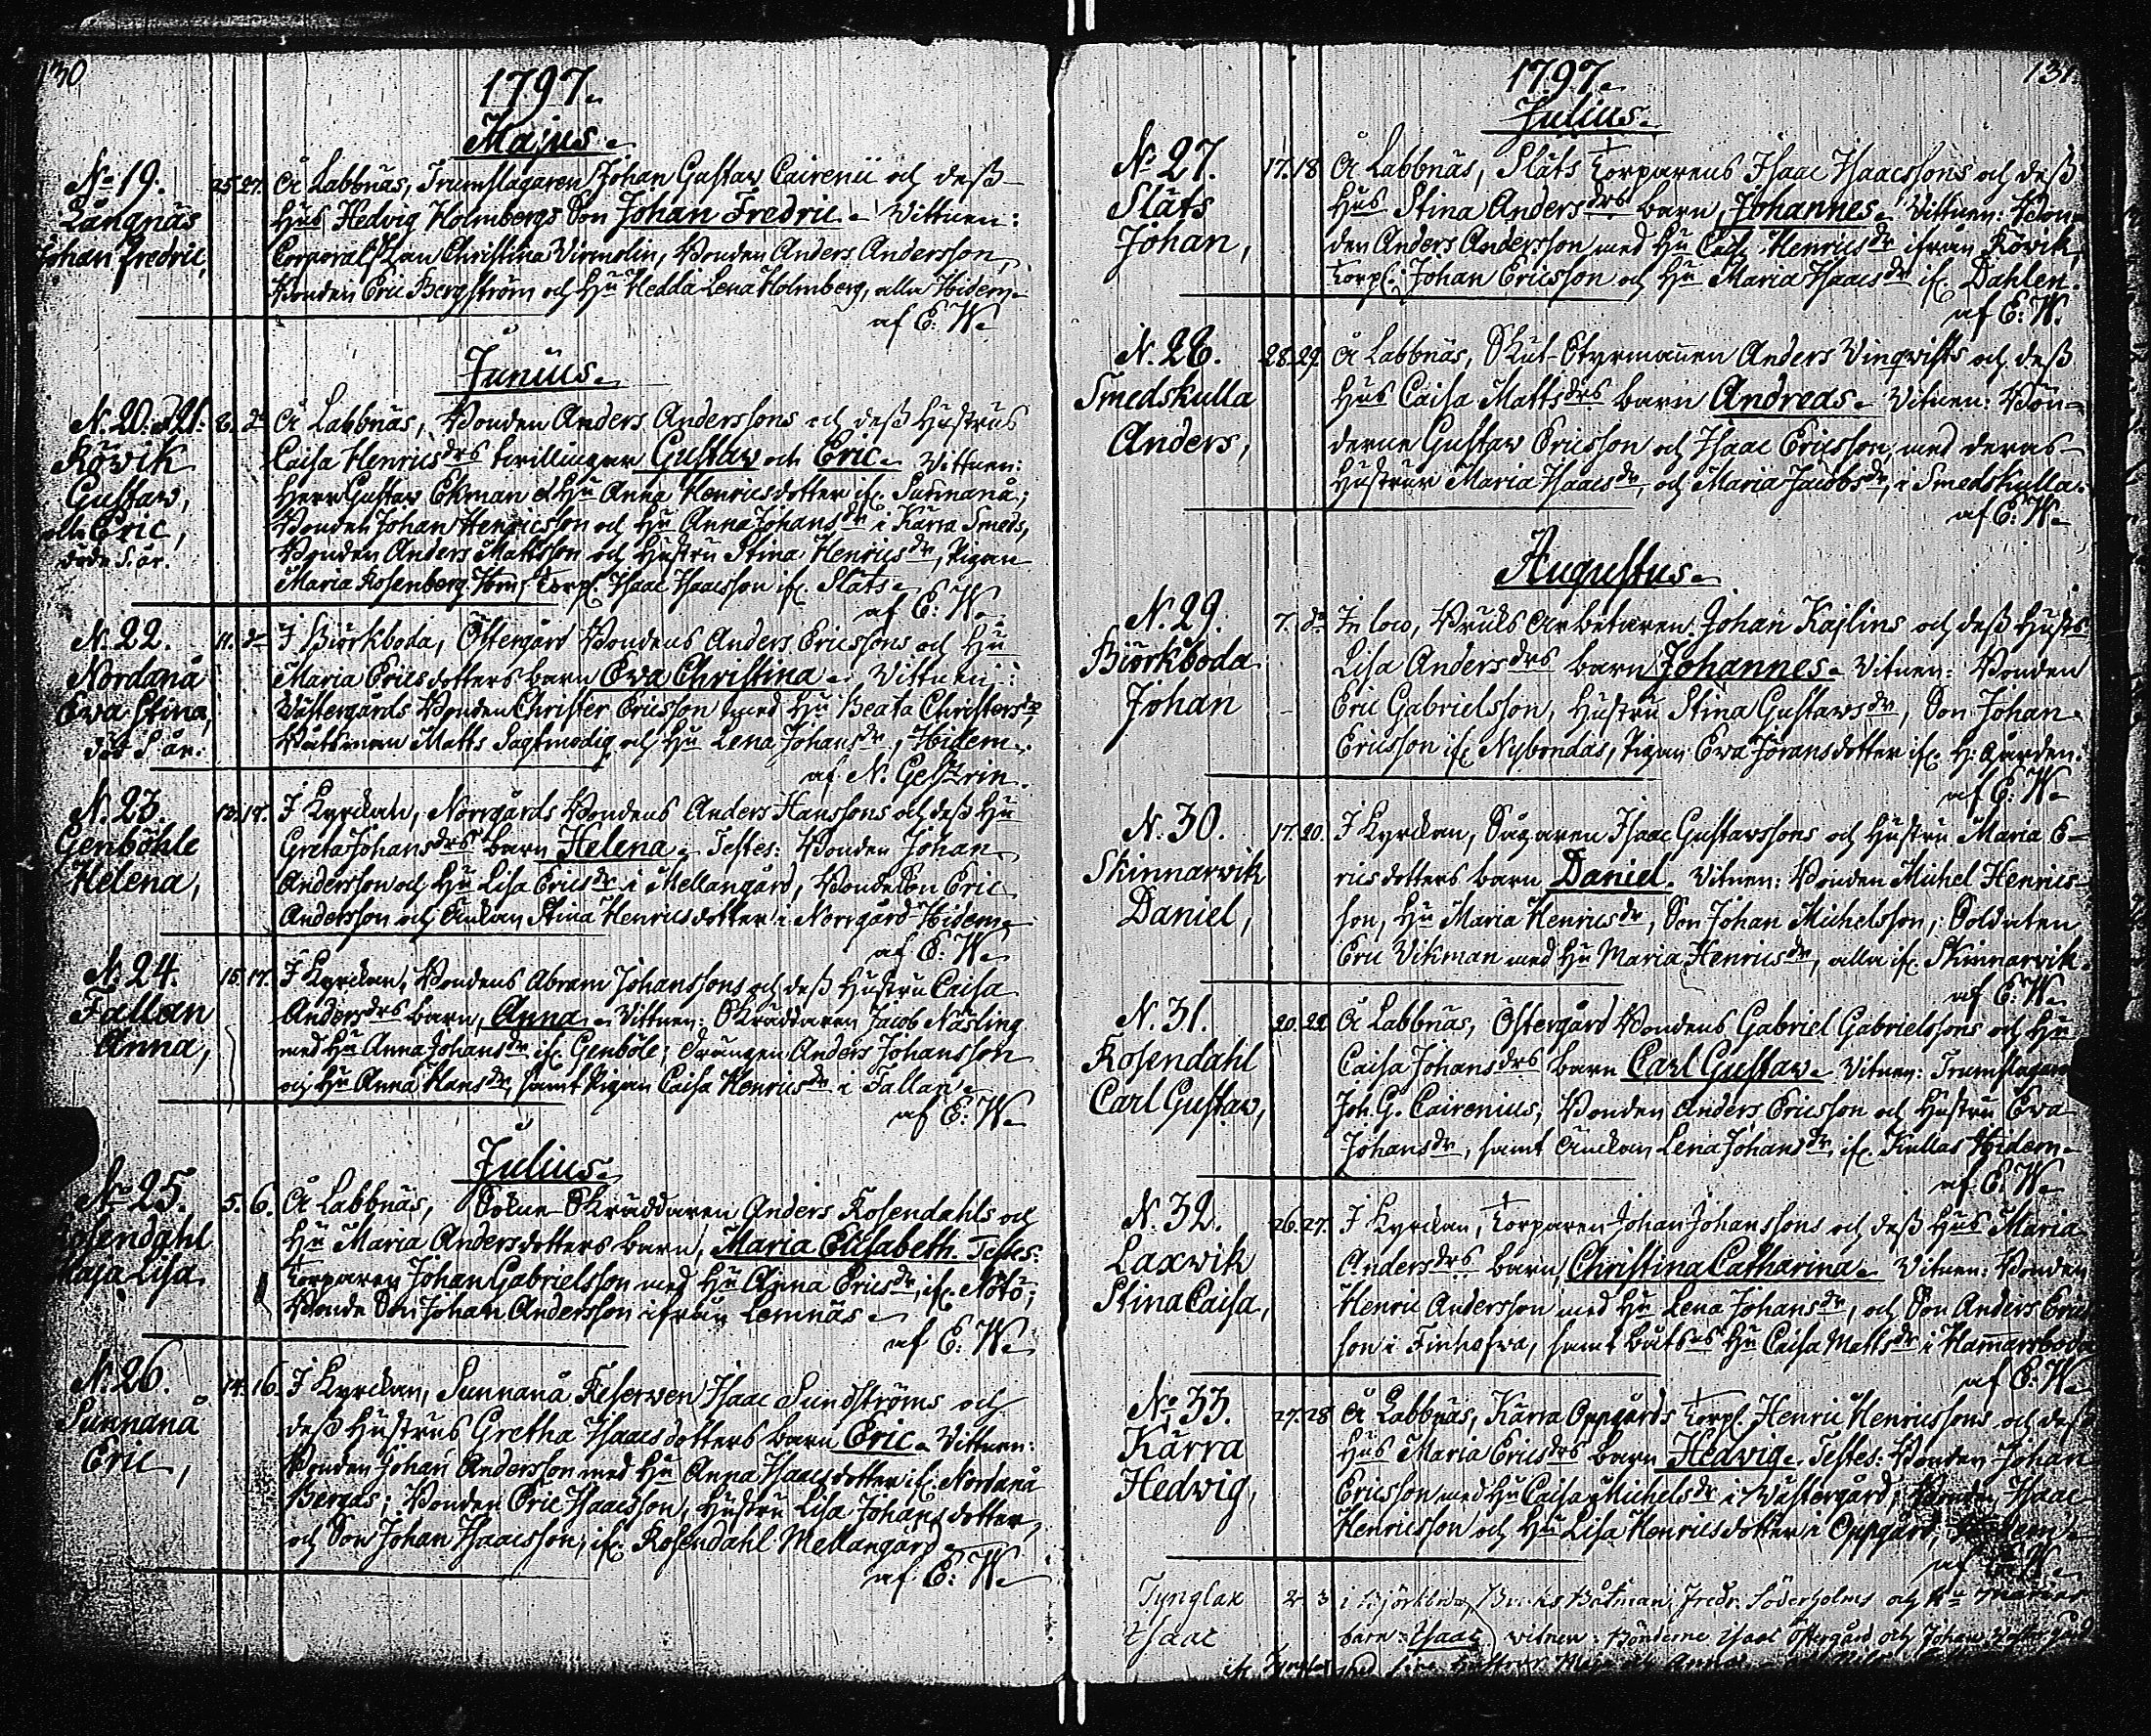 130
1797.
Majus.
N:o 19.
Långnäs
Johan Fredric,
25. 27. Å Labbnäs, Trumslagaren Johan Gustav Cairenii och dess
Hus Hedvig Holmbergs Son Johan Fredric. Vittnen:
Corporals Christina Virmolin, Bonden Anders Andersson,
Bonden Eric Bergström och Hu Hedda Lena Holmberg, alla Ibidem.
af E: W.
Junius.
N. 20. & 21.
Kåwik
Gustaw,
och Eric,
döde S. år.
8. do Å Labbnäs, Bonden Anders Anderssons och dess Hustrus
Caisa Henricsdrs tvillingar Gustaw och Eric. Vittnen:
Herr Gustav Ekman & Hu Anna Henricsdotter if. Sunnanå;
Bonden Johan Henricsson och Hu Anna Johansdr i Kärra Smeds,
Bonden Anders Mattsson och Hustru Stina Henricsdr, Pigan
Maria Rosenberg Torp. Isaac Isaacsson if. Släts.
af E: W.
N. 22.
Nordanå
Ewa Stina,
död S år.
11. do I Biörkboda, Östergård Bondens Anders Ericssons och Hu
Maria Ericsdotters barn Ewa Christina. Vittnen:
Wästergårds Bonden Christer Ericsson med Hu Beata Christersdr,
Båtsman Matts Sagtmodig och Hu Lena Johansdr, Ibidem.
af N. Gestrin.
N. 23.
Genböhle
Helena,
13. 17. I Kyrckan, Norrgårds Bondens Anders Hanssons och dess Hu
Greta Johansdrs barn Helena. Testes: Bonden Johan
Andersson och Hu Lisa Ericsdr i Mellangård, Bonde Son Eric
Andersson och Enkan Stina Henricsdotter i Norrgård Ibidem.
af E: W.
N. 24.
Fallan
Anna,
15. 17. I Kyrckan, Bondens Abram Johanssons och dess Hustru Caisa
Andersdrs barn, Anna. Vittnen: Skräddaren Jacob Näsling
med Hu Anna Johansdr if. Genböle; Drängen Anders Johansson
och Hu Anna Hansdr, samt Pigan Caisa Henricsdr i Fallan.
af E: W.
Julius.
N:o 25.
Rosendahl
Maja Lisa.
5. 6. Å Labbnäs, Sokne Skräddaren Anders Rosendahls och
Hu Maria Andersdotters barn, Maria Elisabeth. Testes:
Torparen Johan Gabrielsson med Hu Anna Ericsdr, if. Nötö;
Bonde Son Johan Andersson ifrån Lemnäs.
af E: W.
N. 26.
Sunnanå
Eric,
14. 16. I Kyrckan, Sunnanå Reserven Isaac Sundströms och
dess Hustrus Gretha Isaacsdotters barn Eric. Vittnen:
Bonden Johan Andersson med Hu Anna Isaacsdotter if. Nordanå
Bergas; Bonden Eric Isaacsson, Hustru Lisa Johansdotter,
och Son Johan Isaacsson, if. Rosendahl Mellangård.
af E: W.
131
1797.
Julius.
N:o 27.
Släts
Johan,
17. 18 Å Labbnäs, Släts Torparens Isaac Isaacssons och dess
Hus Stina Andersdrs barn, Johannes. Vittnen: Bon-
den Anders Andersson med Hu Caisa Henricsdr ifrån Kåvik,
Torp. Johan Ericsson och Hu Maria Isaacsdr if. Dahlen.
af E: W.
N. 28.
Smedskulla
Anders,
28. 29. Å Labbnäs, Skut-Styrmannen Anders Vinqwists och dess
Hus Caisa Mattsdrs barn Andreas. Vitnen: Bön-
derne Gustaw Ericsson och Isaac Ericsson, med deras
Hustrur Maria Isaacsdr, och Maria Jacobsdr, i Smedskulla.
af E: W.
Augustus.
N. 29.
Biörkboda
Johan
7. do In loco, Bruks Arbetaren Johan Kajlins och dess Husts
Lisa Andersdrs barn Johannes. Vitnen: Bonden
Eric Gabrielsson, Hustru Stina Gustawsdr, Son Johan
Ericsson if. Nybondas, Pigan Ewa Göransdotter if. H: Gården.
af E: W.
N. 30.
Skinnarwik
Daniel,
17. 20. I Kyrckan, Sågaren Isaac Gustavssons och Hustru Maria E-
ricsdotters barn Daniel. Vitnen: Bonden Michel Henrics-
son, Hu Maria Henricsdr, Son Johan Michelsson, Soldaten
Eric Vikman med Hu Maria Henricsdr, alla if. Skinnarwik.
af E: W.
N. 31.
Rosendahl
Carl Gustaw,
20. 22 Å Labbnäs, Östergård Bondens Gabriel Gabrielssons och Hu
Caisa Johansdrs barn Carl Gustaw. Vitnen: Trumslagaren
Joh. G. Cairenius, Bonden Anders Ericsson och Hustru Ewa
Johansdr, samt Enckan Lena Johansdr, if. Kullas Ibidem.
af E: W.
N. 32.
Laxwik
Stina Caisa,
26. 27. I Kyrckan, Torparen Johan Johanssons och dess Hus Maria
Andersdrs barn, Christina Catharina. Vitnen: Bonden
Henric Andersson med Hu Lena Johansdr, och Son Anders Erics-
son i Finhofwa, samt Båtsms Hu Caisa Mattsdr i Hammarsboda
af E: W.
N:o 33.
Kärra
Hedwig,
27. 28 Å Labbnäs, Kärra Oppgårds Torp. Henric Henricssons och dess
Hus Maria Ericsdrs barn Hedvig. Testes: Bonden Johan
Ericsson med Hu Caisa Michelsdr i Wästergård, Bonden Isaac
Henricsson och Hu Lisa Henricsdotter i Oppgård, Ibidem.
af E: W.
Tynglax
Isaac
2. 3 i Björkboda, Bruks Båtman Fredr. Söderholms och
barn Isaac. vitnen: Bönderne Isaac Östergård och Johan